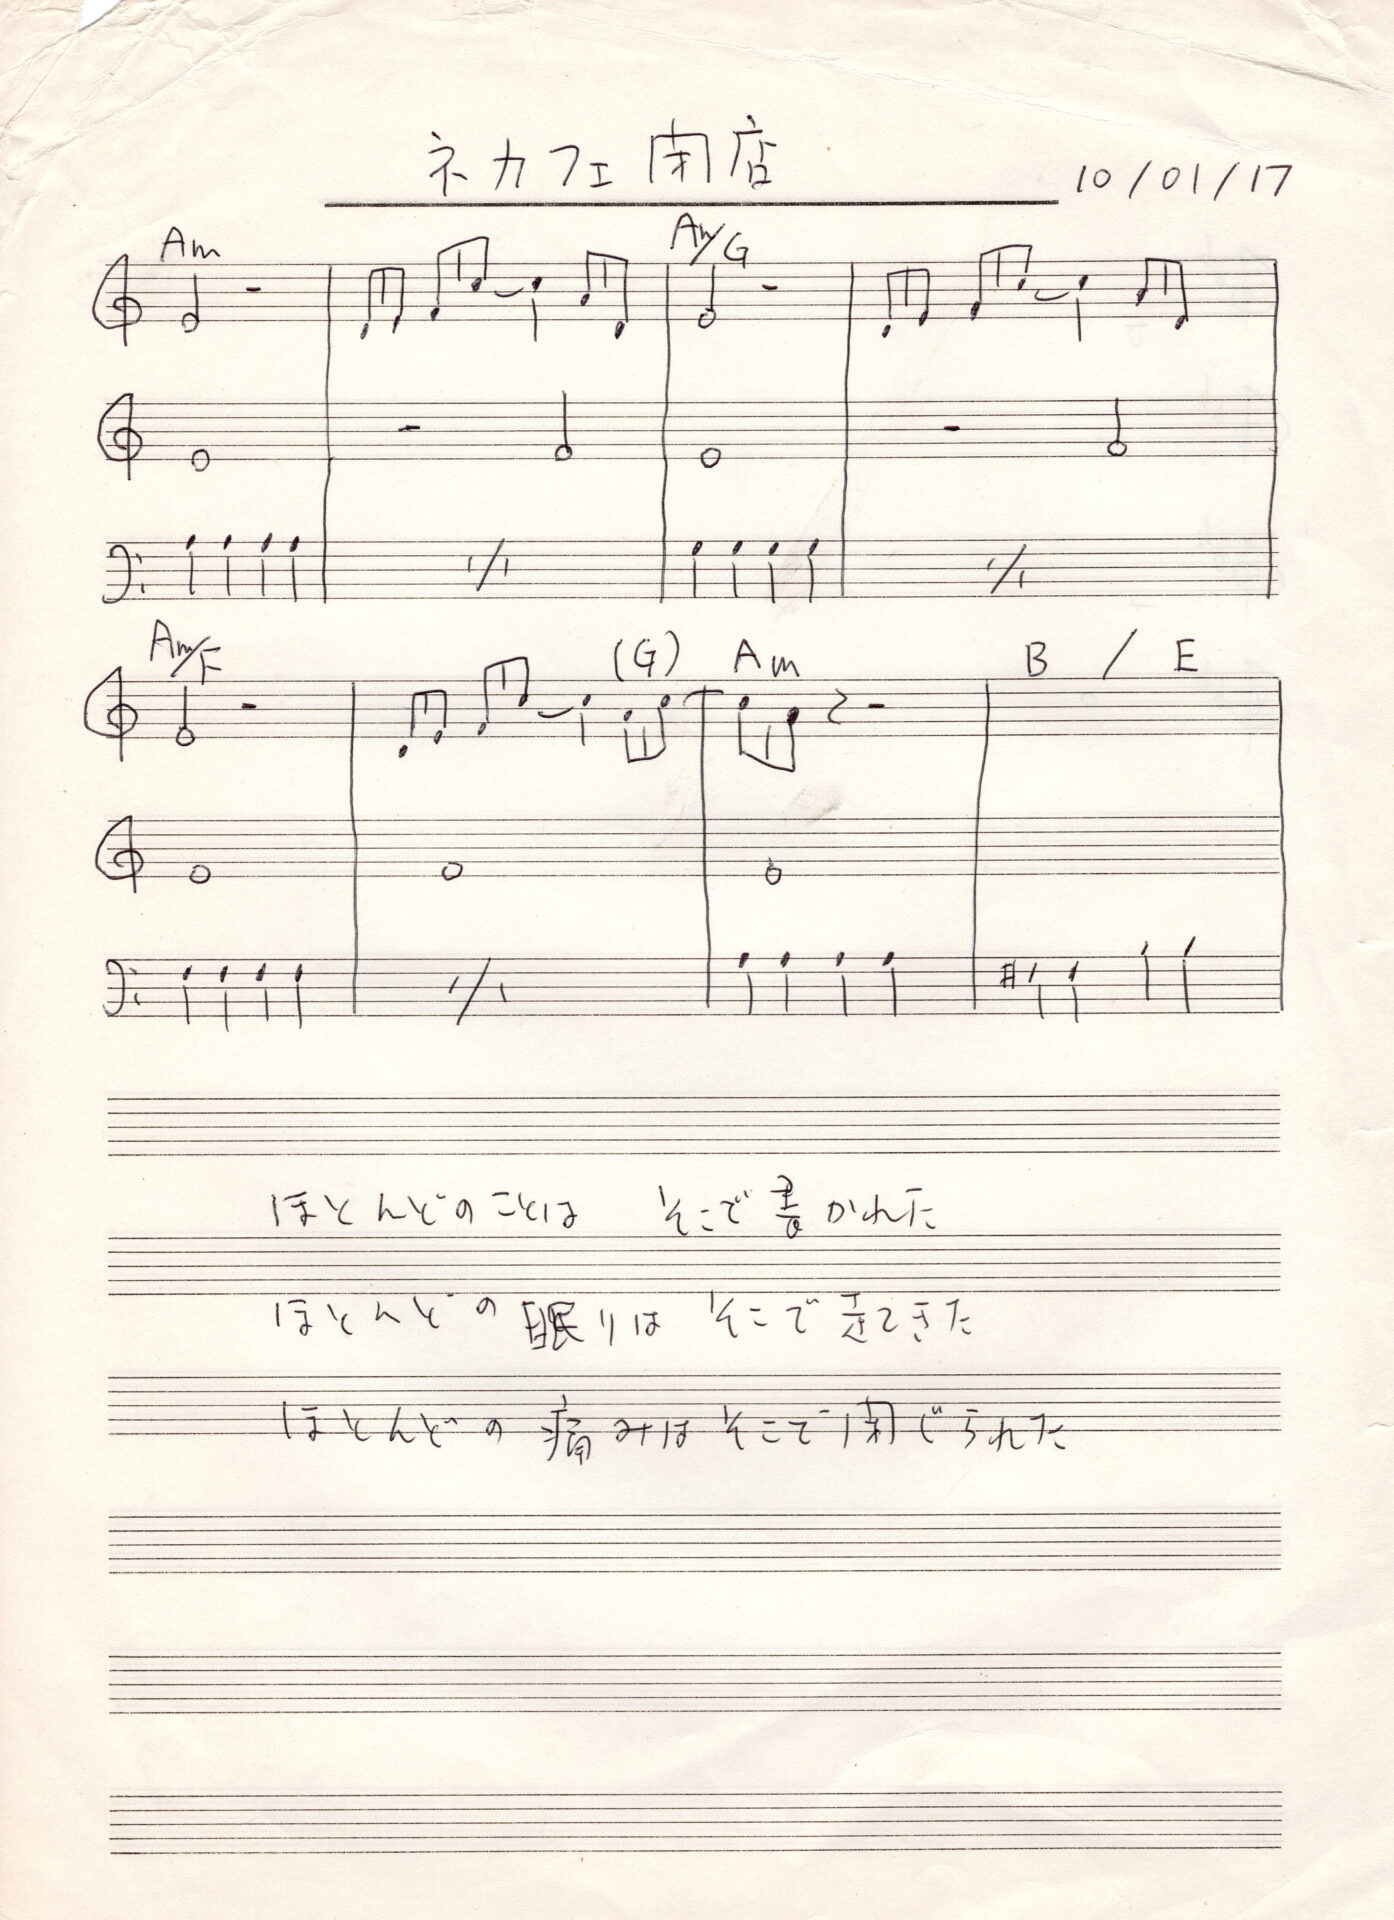 ネカフェ閉店
10/01/17
Am Am/G
Am/F (G) Am B / E
ほとんどのことは そこで書かれた
ほとんどの眠りは そこで起きた
ほとんどの痛みはそこで閉じられた